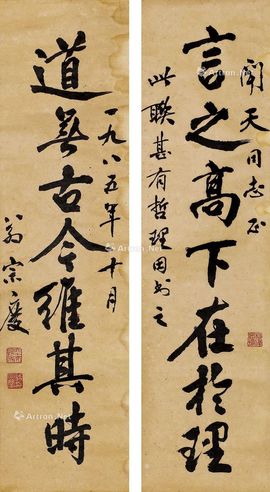 開天同志正
言之高下在於理
此联甚有哲理因书之
一九八五年十月
道無古今維其時
翁宗庆
Artron.Net
Artron.Net
Artron.Net
Artron.Net